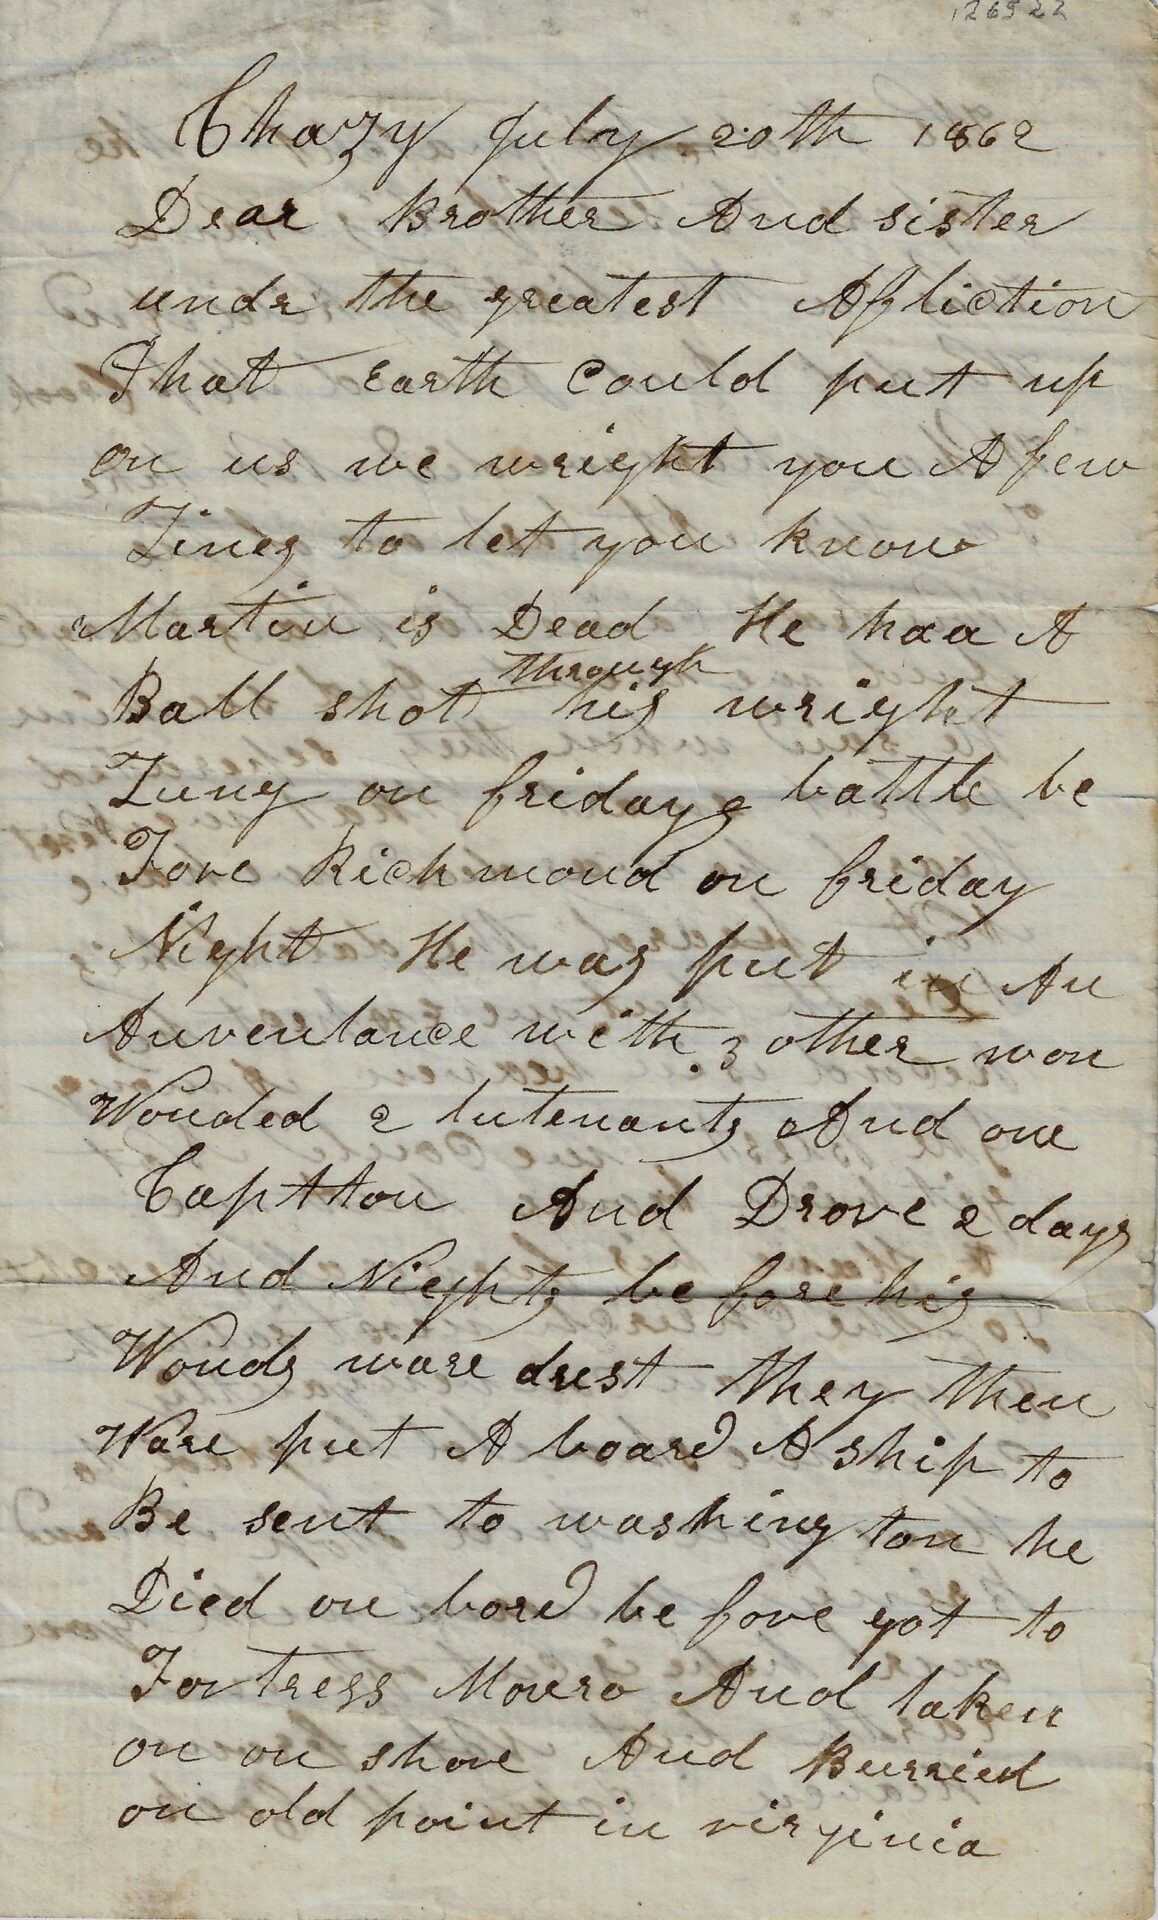 126522
Chazy July 20th 1862
Dear Brother And sister
undr the greatest Afliction
That Earth Could put up
on us we wright you A few
Lines to let you know
Martin is Dead He haa A
through
Ball shot his wright
Lung on fridays battle be
Fore Richmond on friday
Night He was put in An
Anvenlance with 3 other won
Wonded 2 lutenants And one
Captton And Drove 2 days
And Nights be fore his
Wonds ware drest they then
Ware put A board A ship to
Be sent to washing ton he
Died on bord be fore got to
Fortress Monro And taken
on on shore And Burried
on old point in virginia